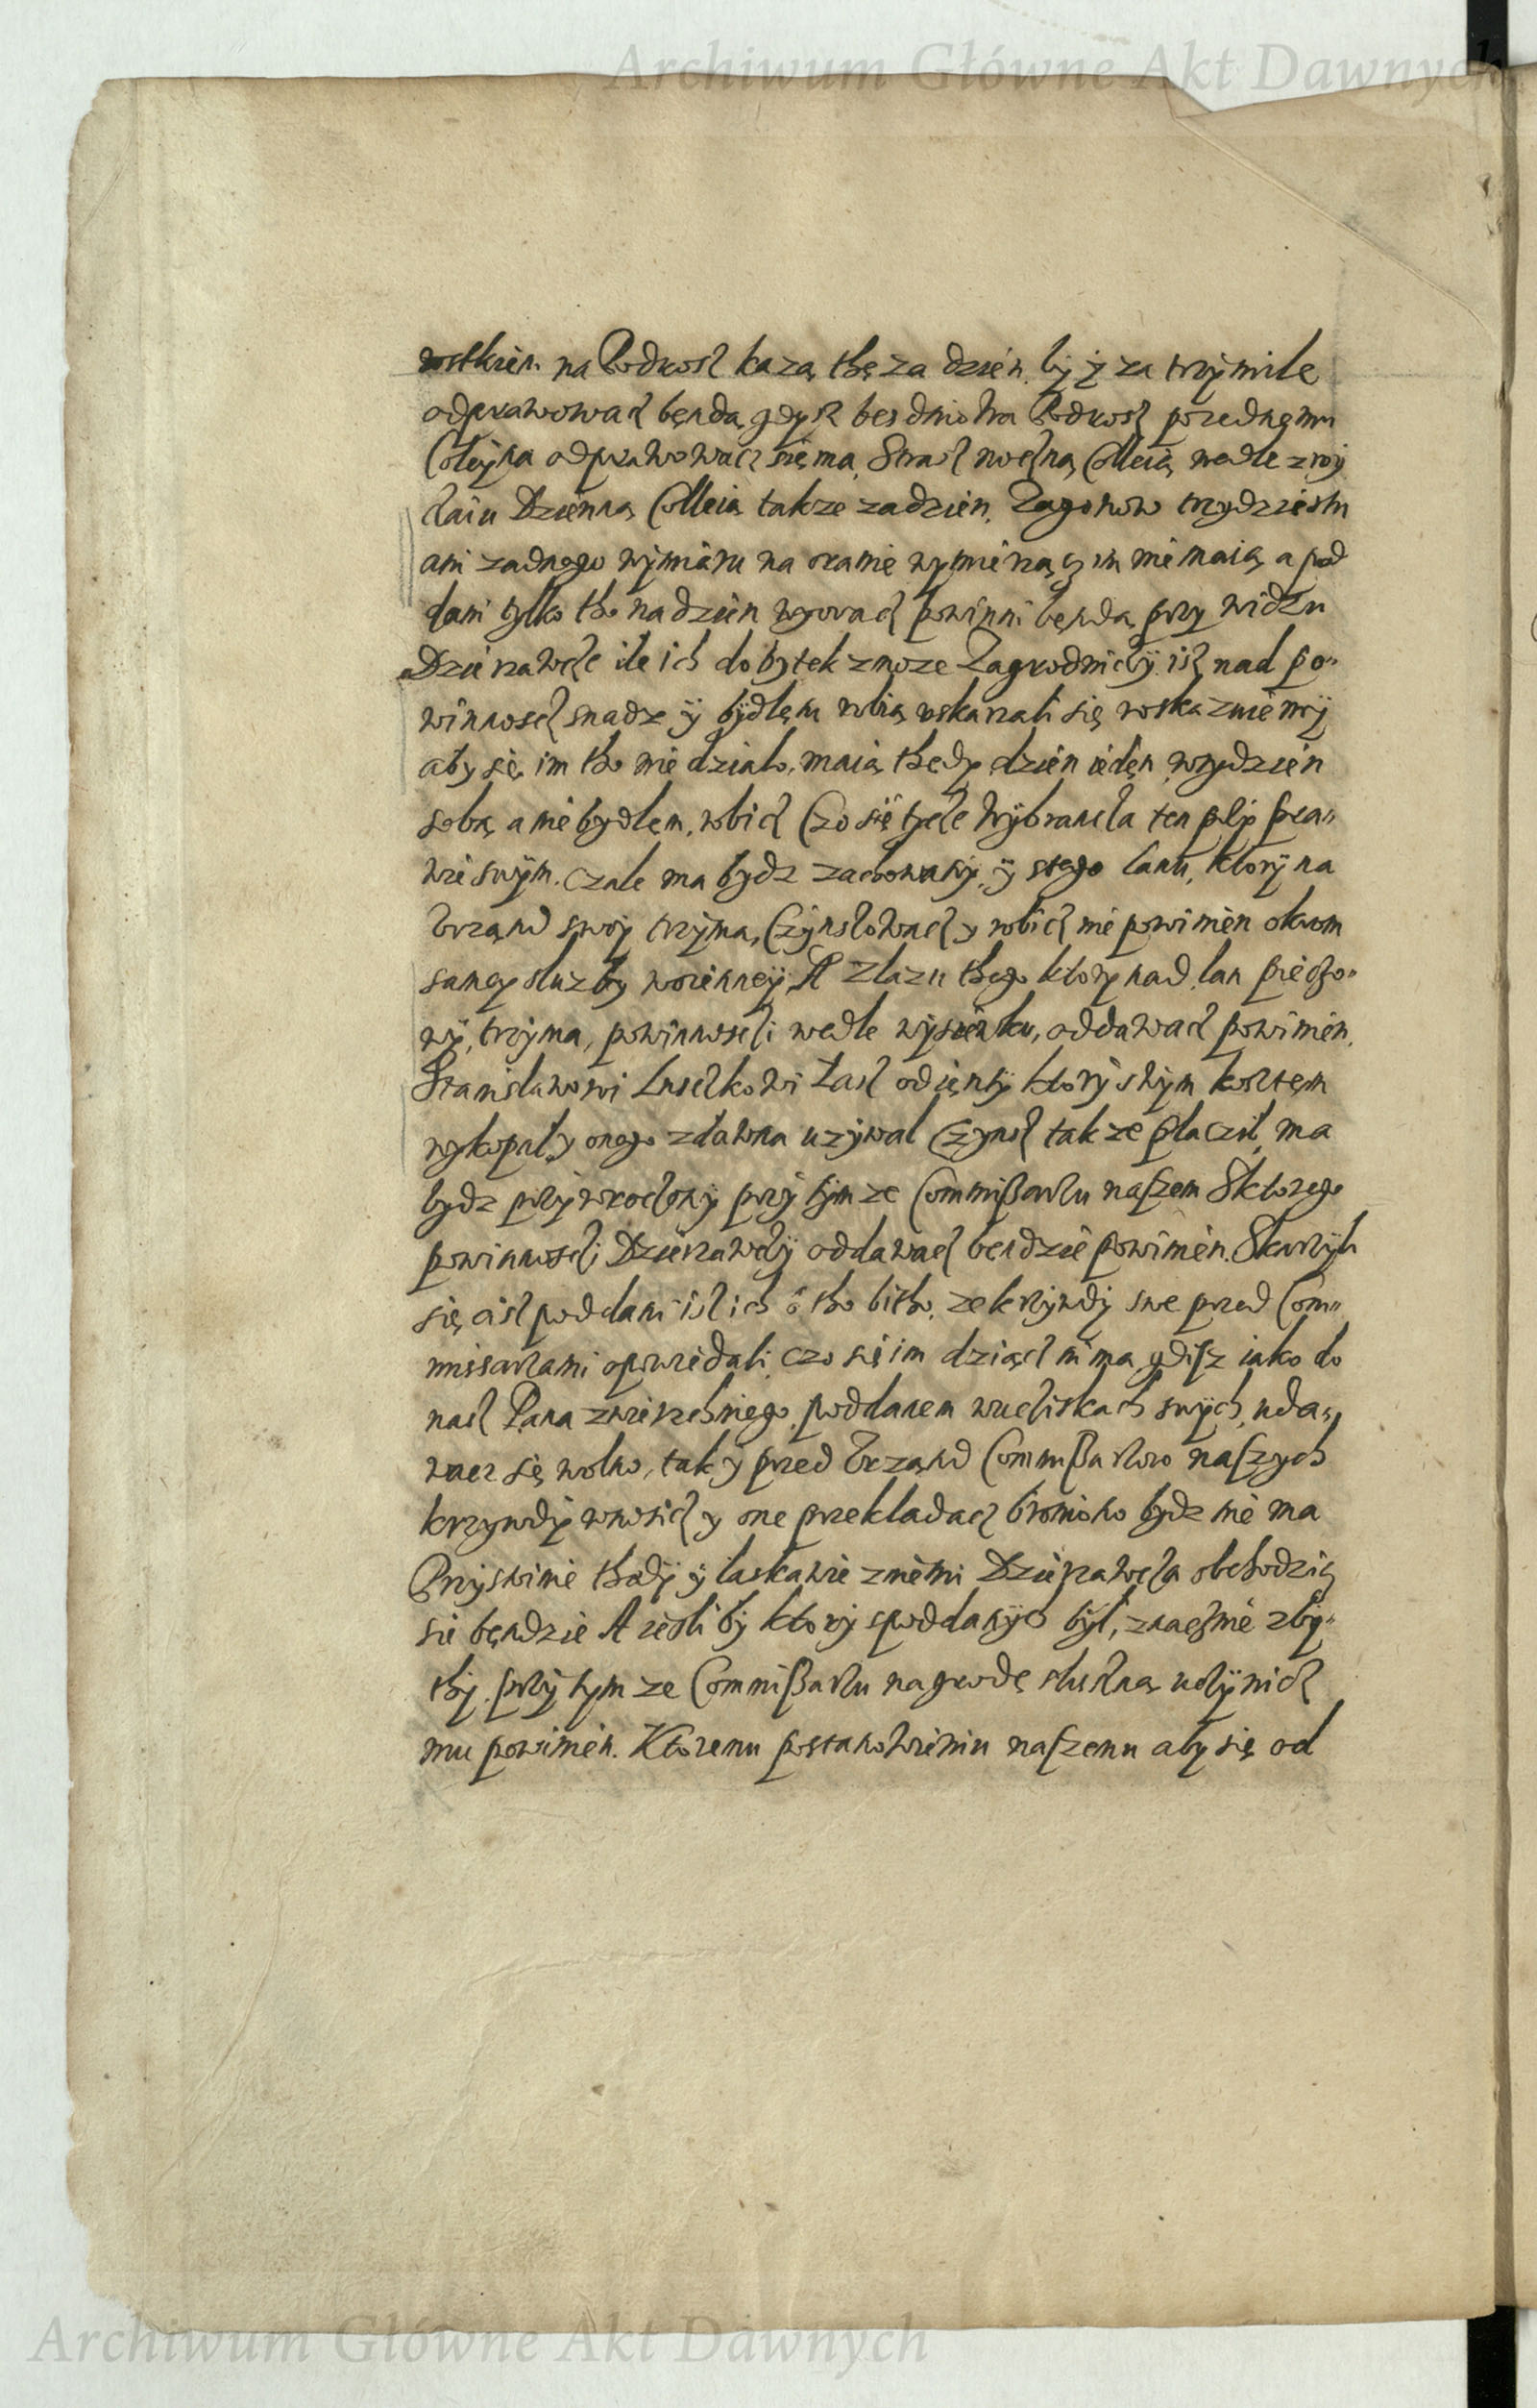 Archiwum Główne Akt Dawnych
na Podwosz kazą thę za dzien by y za trzy mile
odprawowacz będą gdysz bes dnio tra Podwosz porzednęmu
Coleyna odprawowacz się ma. Strasz noczną Colleią wedle zwy
czaiu Dzienną Colleią takze zadzien. Zagonow trzydziestu
ani zadnego wymiaru na oranie wymierzącz im nie maią a pod
dani tylko tho na dzien woracz powinni będą przy widzu
Dzierzawcze ile ich dobytek zmoze Zagrodniczy isz nad po„
winnoscz snadz y bydlęm robią uskarzali się roskazuiemy
aby się im tho nie dzialo, maią thedy dzien iedęn wtydzien
sobą a nie bydlęm robicz Czo się tycze Wybrancza ten przy pra„
wie swym czale ma bydz zachowany y stego lanu, ktory na
Urząnd swoy trzyma, Czynszowacz y robicz nie powinien okrom
samey sluzby woienney. A zlazu thego ktory nad lan pieszo„
wy, trzyma, powinnosczi wedle wysiewku, oddawacz powinien.
Stanislawowi Łaz odięnty ktory swym kosztęm
wykopal y onego zdawna uzywal Czynsz takze placzil ma
bydz przywroczony przy tymze Commissarzu naszem Sktorego
powinnosczi Dzierzawczy oddawacz bendzie powinien. Skarzyli
się cisz poddani isz ich o tho bitho, ze krzywdy swe przed Com„
missarzami opowiedali, czo się im dziącz ni ma gdisz iako do
nasz Pana zwierzchniego poddanem wuczliskach swych, uda„
wacz się wolno, tak y przed Urząnd Commissarzow naszych
krzywdy wnosicz y one przekladacz bronio no bydz nie ma
Przystoinie thedy y laskawie zniemi Dzierzawcza obchodzicz
sie będzie A iesli by ktory spoddanych byl, znacznie zby„
thy, przy tymze Commissarzu nagrodę sluszną uczynicz
mu powinien. Ktoremu postanowieniu naszemu aby się od
Archiwum Główne Akt Dawnych